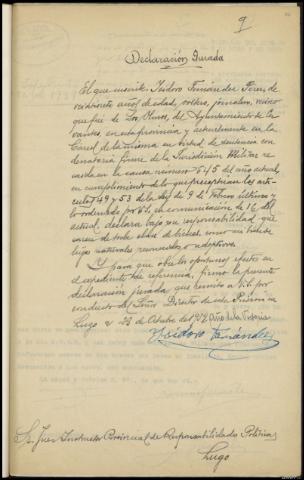 9
Declaración Jurada
El que suscribe Isidoro Fernández Pérez, de
veintisiete años de edad, soltero, jornalero, vecino
que fué de del Ayuntamiento de
en esta provincia y actualmente en la
Carcel de la misma en virtud de sentencia con-
denatoria firme de la Jurisdicción Militar re-
caida en la causa número 645 del año actual,
en cumplimiento de lo que preceptuan los arti-
culos 49 y 53 de la Ley de 9 de Febrero último y
lo ordenado por Vd. en comunicación de 16 del
actual, declara bajo su responsabilidad que
carece de toda clase de bienes, como así también
hijos naturales reconocidos o adoptivos.
Y para que obre los oportunos efectos en
el expediente de referencia, firmo la presente
declaración jurada que remito a Vd. por
conducto del Señor Director de esta Prisión en
Lugo a 23 de Octubre del 939 Año de la Victoria
Isidoro Fernández
Sr. Juez Instructor Provincial de Responsabilidades Políticas
Lugo